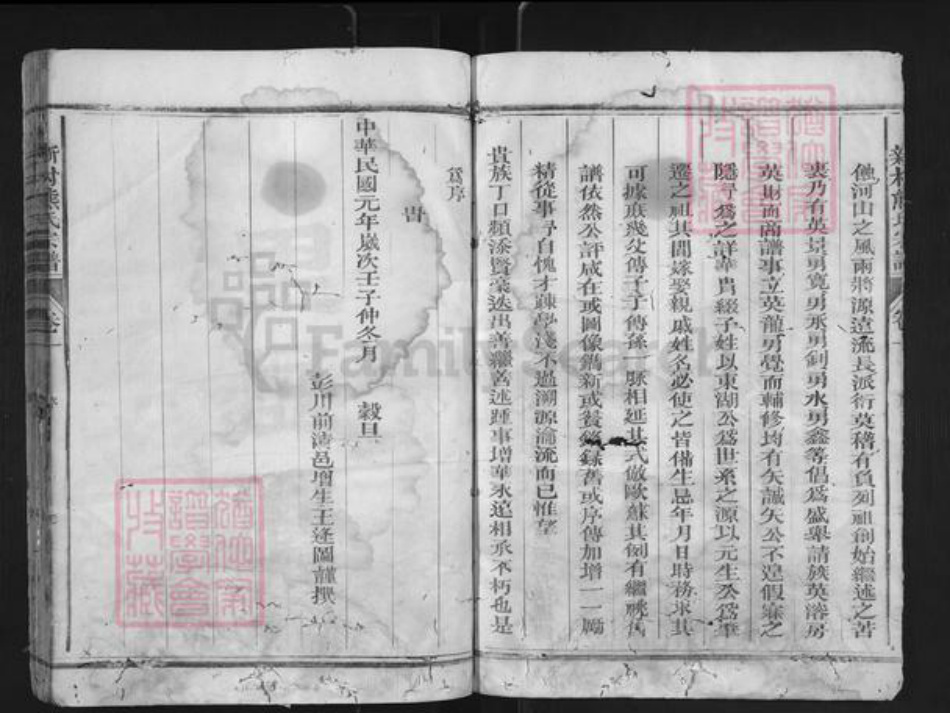 蝕河山之風雨將源遠流長派衍英稽有負列祖創始繼述之苦
衷乃有英景男竟男承男釗男水男鑫等倡爲盛舉請族英濬房
英財而商譜事立英龍男覺而輔修均有矢誠矢公不遑假寐之
隱尋爲之詳華冑綴子姓以東湖公爲世系之源以元生公爲
遷之祖其間嫁娶親戚姓名必使之皆備生忌年月日時務求其
可據庶幾父傳子子傳孫一脈相延其式倣歐蘇其例有繼祧舊
譜依然公評咸在或圖像鐫新或錄舊或序傳加增一一勵
精從事予自愧才疎學淺不過溯源淪流而已惟望
貴族丁口頻添賢豪迭出善繼善述踵事增華永遠相承不朽也是
爲序
旹
中華民國元年歲次壬子仲冬月 穀旦
彭川前清邑增生王逢圖謹撰
新村熊氏公譜 卷一
FamilySearch